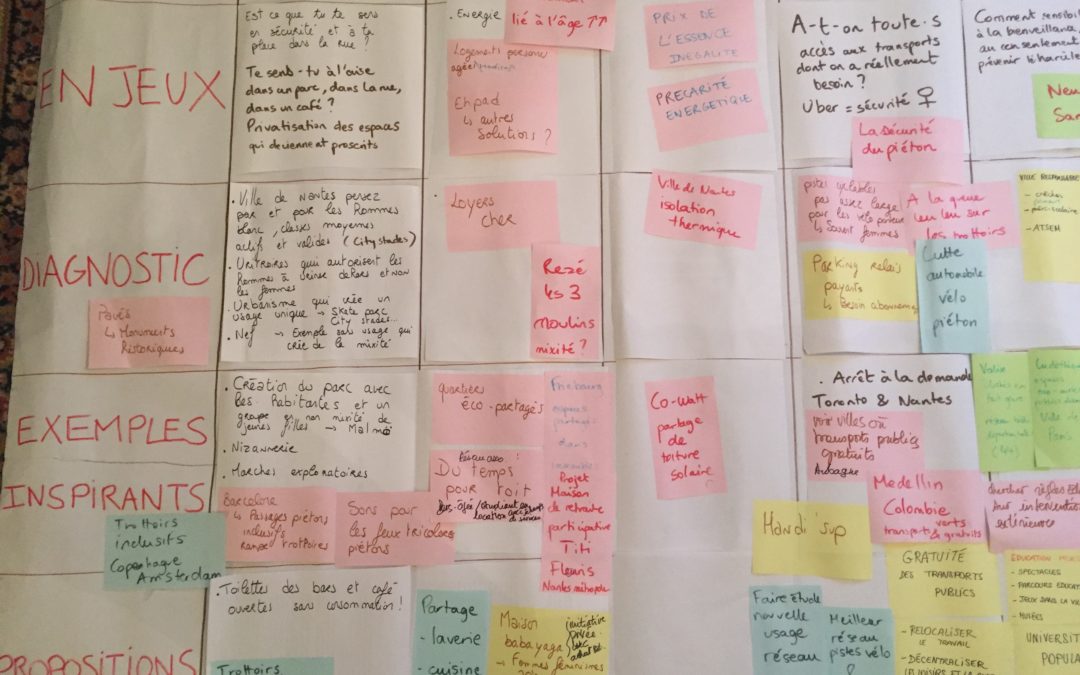 EN JEUX
Est ce que tu te sens
en sécurité et à ta
place dans la rue ?
Te sens-tu à l'aise
dans un parc, dans la rue,
dans un café ?
Privatisation des espaces
qui deviennent proscrits
. Energie
lié à l'âge ↑↑
Logements
agée
Ehpad
↳ autres
solutions ?
PRIX DE
L'ESSENCE
INEGALITE
PRÉCARITÉ
ENERGETIQUE
A-t-on toute·s
accès aux transports
dont on a réellement
besoin ?
Uber = sécurité ♀
La sécurité
du piéton
Comment sensibi
à la bienveillance,
au consentement
prévenir le harcèle
DIAGNOSTIC
Pavés
↳ Monuments
Historiques
. Ville de Nantes pensez
par et pour les Hommes
blanc, classes moyennes
actif et valides (City stades)
. Uritroires qui autorisent les
Hommes à uriner dehors et non
les femmes
. Urbanisme qui crée un
usage unique → Skate parc
City stades...
. Nef → Exemple sans usage qui
crée de la mixité
Loyers
cher
Rezé
les 3
moulins
mixité ?
Ville de Nantes
isolation
thermique
pistes cyclables
pas assez large
pour les vélo porteur
↳ Souvent femmes
A la queue
leu leu sur
les trottoirs
Parking relais
payants
↳ Besoin abonnement
Cutte
automobile
vélo
piéton
VILLE RESPONSABLE
- crèches
- péri-scolaire
- ATSEM
EXEMPLES
INSPIRANTS
Trottoirs
inclusifs
Copenhague
Amsterdam
. Création du parc avec
les habitantes et un
groupe en non mixité de
jeunes filles → Malmö
. Nizannerie
. Marches exploratoires
Barcelone
↳ Passages piétons
inclusifs
Rampe trottoires
Sons pour
les feux tricolores
piétons
quartiers
éco-partagés
Réseau asso :
Du temps
pour toit
Fribourg
espaces
partagés
dans
immeuble
Projet
Maison
de retraite
participative
Titi
Fleuris
Nantes métropole
Co-watt
partage
de
toiture
solaire
. Arrêt à la demande
Toronto & Nantes
voir villes où
transports publics
gratuits
Aubagne
Medellin
Colombie
verts
transports & gratuits
Handi'sup
GRATUITÉ
DES TRANSPORTS
PUBLICS
EDUCATION
- SPECTACLES
- PARCOURS EDUCA
- JEUX DANS LA V
- MUSÉES
PROPOSITIONS
. Toilettes des bars et café
ouvertes sans consommation !
Trottoirs
Partage
- laverie
- cuisine
Maison
babayaga
- Femmes féminines
initiative
privée
Faire étude
nouvelle
usage
réseau
Meilleur
réseau
pistes vélo
- RELOCALISER
LE TRAVAIL
- DÉCENTRALISER
UNIVERSIT
POPULA